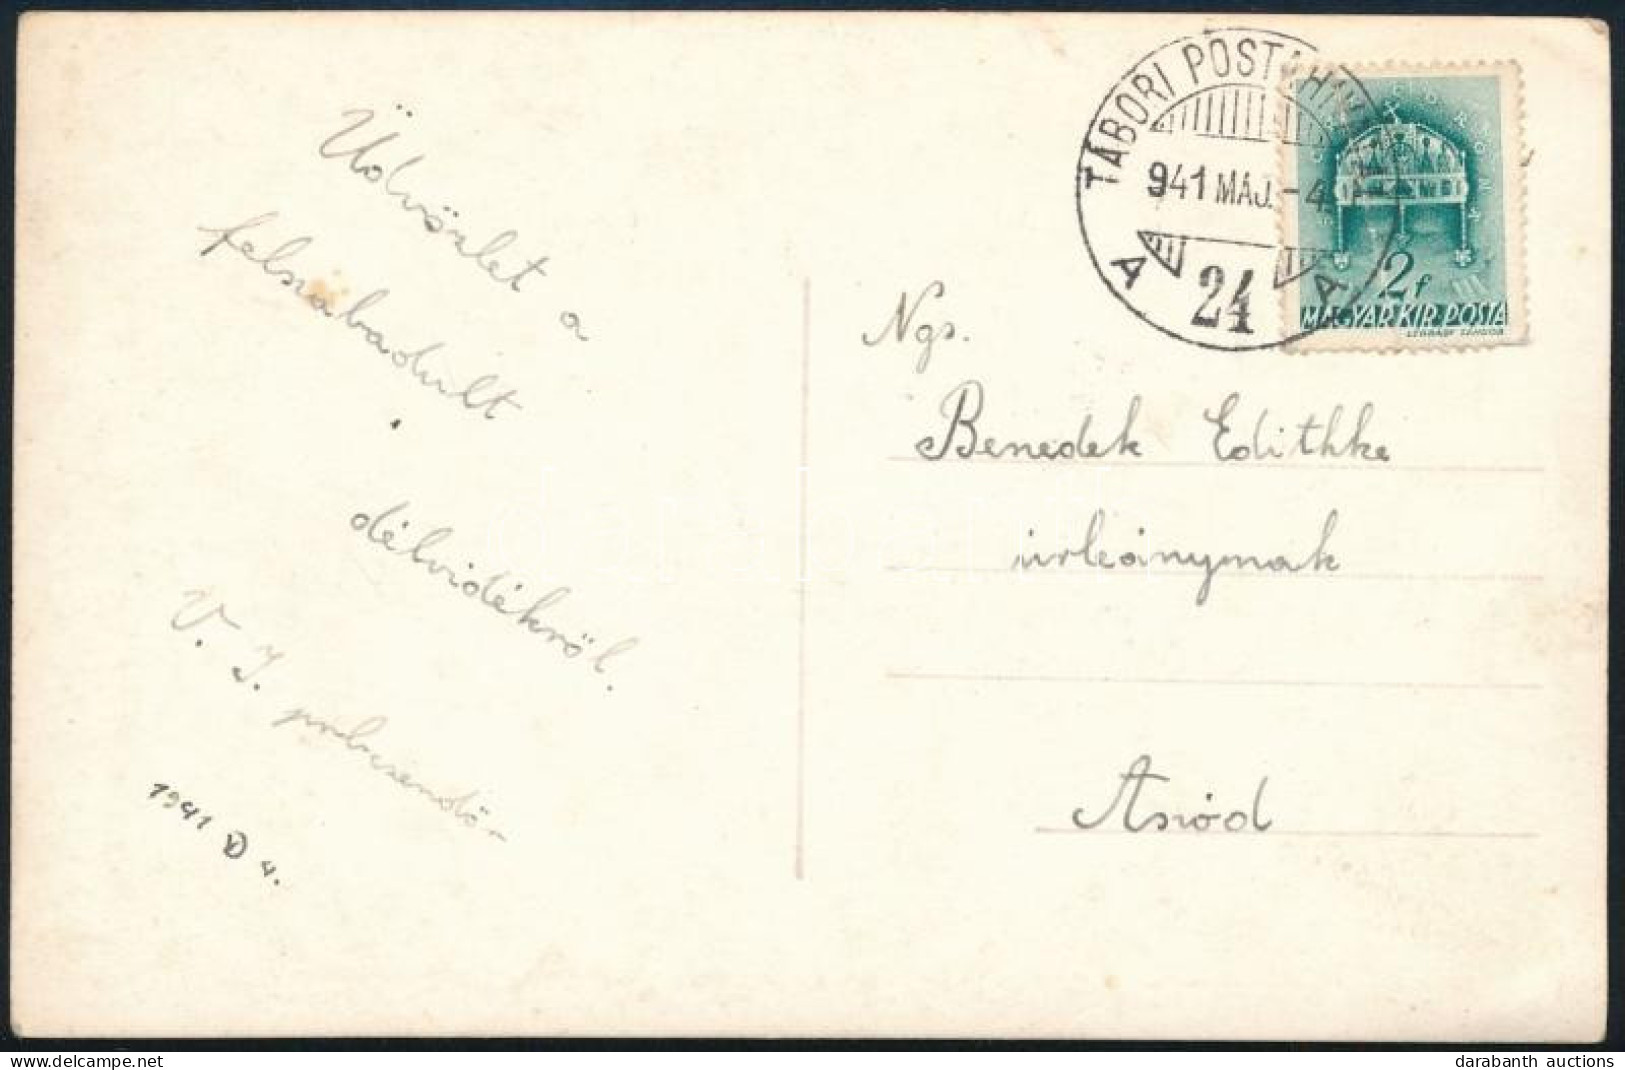 Üdvözlet a
felszabadult
délvidékről.
V. J. próbacsendőr
1941 D 4.
TÁBORI POSTAHIVATAL
941 MÁJ. -4.
A 24 A
2f
MAGYAR KIR. POSTA
Ngs.
Benedek Edithke
úrleánynak
Aszód
www.delcampe.net
darabanth auctions